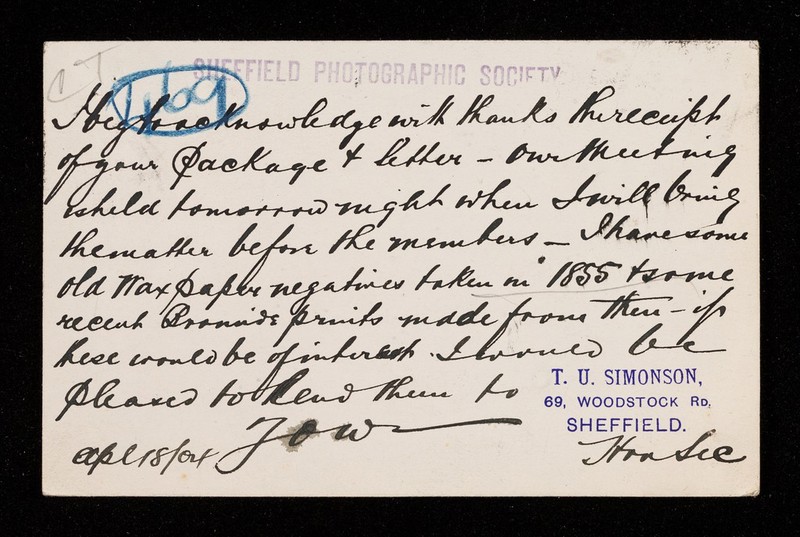 SHEFFIELD PHOTOGRAPHIC SOCIETY
I beg to acknowledge with thanks the receipt
of your package & letter – Our Meeting
is held tomorrow night when I will bring
the matter before the members – I have some
old Wax paper negatives taken in 1855 & some
recent Bromide prints made from them – if
these would be of interest. I would be
pleased to lend them to
you
T. U. SIMONSON,
69, WOODSTOCK RD.
SHEFFIELD.
Apl 18/04
Hon Sec